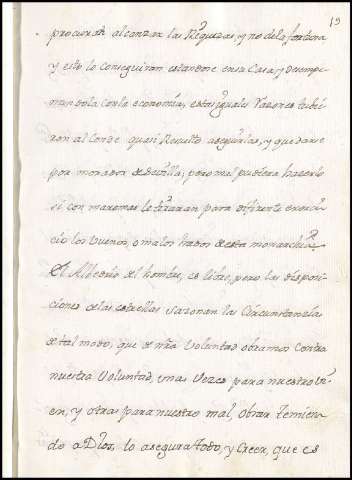 19
procuran alcanzar las Riquezas, y no de la fortuna
y esto lo conseguiran estandose en su Casa, y desempe-
con la economia, estas iguales razones tubie-
ron al Conde quasi Resuelto a seguirlas, y quedarse
por morador de Sevilla; pero mal pudiera hacerlo
si con maromas le tiraran para diferente
cio los buenos, o malos hados de esta monarchia.
El Albedrio del hombre, es libre, pero las disposi-
ciones de las estrellas sazonan las Circunstancias
de tal modo, que de nra Voluntad obramos Contra
nuestra Voluntad, unas Vezes para nuestro vi-
en, y otras para nuestro mal, obrar temien-
do a Dios, lo asegura todo, y Creer, que es